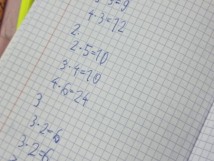 3=9
4·3=12
2.
2·5=10
3·4=10
4·6=24
3
3·2=6
3·2=6